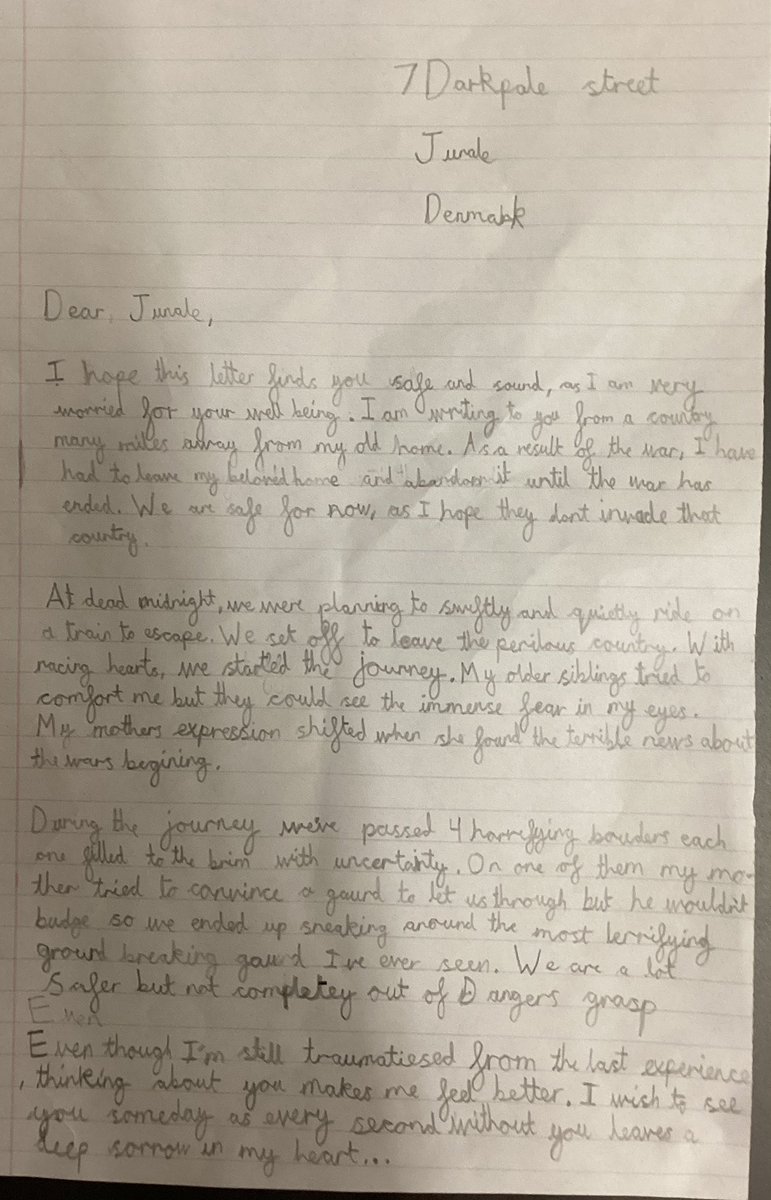 7 Darkpale street
Junale
Denmabk
Dear, Junale,
I hope this letter finds you safe and sound, as I am very
worried for your well being. I am writing to you from a country
many miles away from my old home. As a result of the war, I have
had to leave my beloved home and abandon it until the war has
ended. We are safe for now, as I hope they dont invade that
country.
At dead midnight, we were planning to swiftly and quietly ride on
a train to escape. We set off to leave the perilous country. With
racing hearts, we started the journey. My older siblings tried to
comfort me but they could see the immense fear in my eyes.
My mothers expression shifted when she found the terrible news about
the wars begining.
During the journey we've passed 4 horrifying bouders each
one filled to the brim with uncertainty. On one of them my mo-
ther tried to convince a gaurd to let us through but he wouldn't
budge so we ended up sneaking around the most terrifying
ground breaking gaurd I've ever seen. We are a lot
safer but not completey out of Dangers grasp
Even
Even though I'm still traumatiesed from the last experience
, thinking about you makes me feel better. I wish to see
you someday as every second without you leaves a
deep sorrow in my heart...